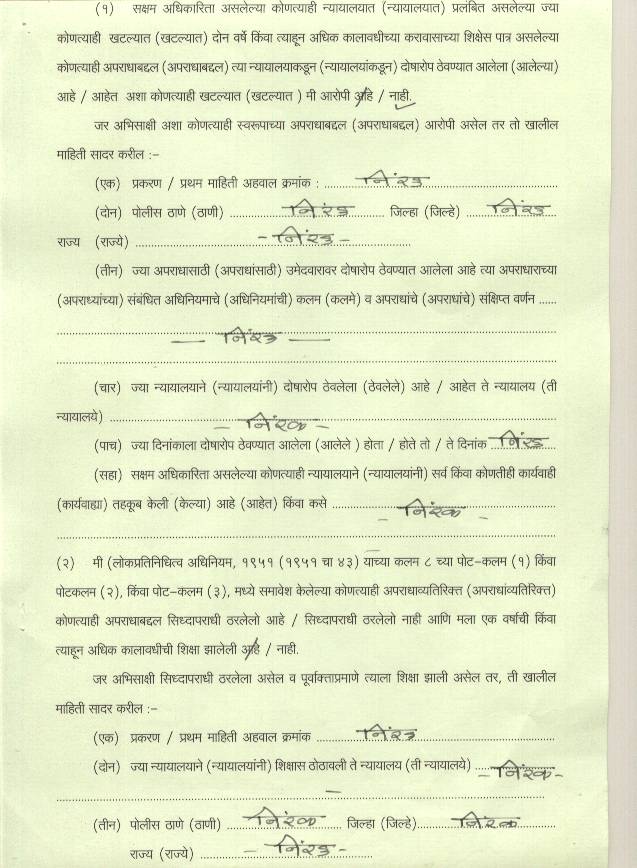 (१) सक्षम अधिकारिता असलेल्या कोणत्याही न्यायालयात (न्यायालयात) प्रलंबित असलेल्या ज्या
कोणत्याही खटल्यात (खटल्यात) दोन वर्षे किंवा त्याहून अधिक कालावधीच्या करावासाच्या शिक्षेस पात्र असलेल्या
कोणत्याही अपराधाबद्दल (अपराधाबद्दल) त्या न्यायालयाकडून (न्यायालयांकडून) दोषारोप ठेवण्यात आलेला (आलेल्या)
आहे / आहेत अशा कोणत्याही खटल्यात (खटल्यात ) मी आरोपी आहे / नाही.
जर अभिसाक्षी अशा कोणत्याही स्वरूपाच्या अपराधाबद्दल (अपराधाबद्दल) आरोपी असेल तर तो खालील
माहिती सादर करील :-
(एक) प्रकरण / प्रथम माहिती अहवाल क्रमांक : निरंक
(दोन) पोलीस ठाणे (ठाणी) निरंक जिल्हा (जिल्हे) निरंक
राज्य (राज्ये) - निरंक -
(तीन) ज्या अपराधासाठी (अपराधांसाठी) उमेदवारावर दोषारोप ठेवण्यात आलेला आहे त्या अपराधाराच्या
(अपराध्यांच्या) संबंधित अधिनियमाचे (अधिनियमांची) कलम (कलमे) व अपराधांचे (अपराधांचे) संक्षिप्त वर्णन ......
— निरंक —
(चार) ज्या न्यायालयाने (न्यायालयांनी) दोषारोप ठेवलेला (ठेवलेले) आहे / आहेत ते न्यायालय (ती
न्यायालये) - निरंक -
(पाच) ज्या दिनांकाला दोषारोप ठेवण्यात आलेला (आलेले ) होता / होते तो / ते दिनांक निरंक
(सहा) सक्षम अधिकारिता असलेल्या कोणत्याही न्यायालयाने (न्यायालयांनी) सर्व किंवा कोणतीही कार्यवाही
(कार्यवाह्या) तहकूब केली (केल्या) आहे (आहेत) किंवा कसे - निरंक -
(२) मी (लोकप्रतिनिधित्व अधिनियम, १९५१ (१९५१ चा ४३) याच्या कलम ८ च्या पोट-कलम (१) किंवा
पोटकलम (२), किंवा पोट-कलम (३), मध्ये समावेश केलेल्या कोणत्याही अपराधाव्यतिरिक्त (अपराधांव्यतिरिक्त)
कोणत्याही अपराधाबद्दल सिध्दापराधी ठरलेलो आहे / सिध्दापराधी ठरलेलो नाही आणि मला एक वर्षाची किंवा
त्याहून अधिक कालावधीची शिक्षा झालेली आहे / नाही.
जर अभिसाक्षी सिध्दापराधी ठरलेला असेल व पूर्वोक्ताप्रमाणे त्याला शिक्षा झाली असेल तर, ती खालील
माहिती सादर करील :-
(एक) प्रकरण / प्रथम माहिती अहवाल क्रमांक निरंक
(दोन) ज्या न्यायालयाने (न्यायालयांनी) शिक्षास ठोठावली ते न्यायालय (ती न्यायालये) - निरंक -
(तीन) पोलीस ठाणे (ठाणी) निरंक जिल्हा (जिल्हे) निरंक
राज्य (राज्ये) - निरंक -